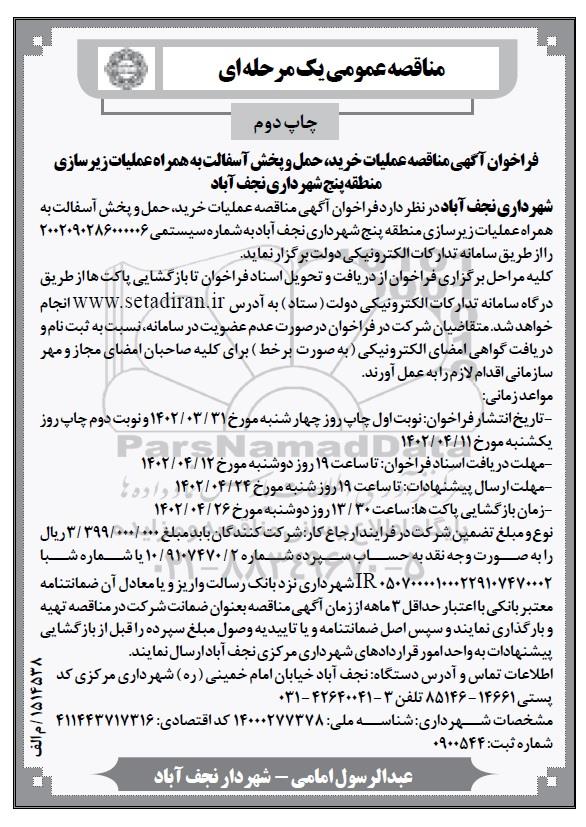 مناقصه عمومی یک مرحله ای
چاپ دوم
فراخوان آگهی مناقصه عملیات خرید، حمل و پخش آسفالت به همراه عملیات زیرسازی
منطقه پنج شهرداری نجف آباد
شهرداری نجف آباد در نظر دارد فراخوان آگهی مناقصه عملیات خرید، حمل و پخش آسفالت به
همراه عملیات زیرسازی منطقه پنج شهرداری نجف آباد به شماره سیستمی ۲۰۰۲۰۹۰۲۸۶۰۰۰۰۰۶
را از طریق سامانه تدارکات الکترونیکی دولت برگزار نماید.
کلیه مراحل برگزاری فراخوان از دریافت و تحویل اسناد فراخوان تا بازگشایی پاکت ها از طریق
درگاه سامانه تدارکات الکترونیکی دولت ( ستاد ) به آدرس www.setadiran.ir انجام
خواهد شد. متقاضیان شرکت در فراخوان در صورت عدم عضویت در سامانه، نسبت به ثبت نام و
دریافت گواهی امضای الکترونیکی ( به صورت بر خط ) برای کلیه صاحبان امضای مجاز و مهر
سازمانی اقدام لازم را به عمل آورند.
مواعد زمانی:
-تاریخ انتشار فراخوان: نوبت اول چاپ روز چهار شنبه مورخ ۱۴۰۲/۰۳/۳۱ و نوبت دوم چاپ روز
یکشنبه مورخ ۱۴۰۲/۰۴/۱۱
-مهلت دریافت اسناد فراخوان: تا ساعت ۱۹ روز دوشنبه مورخ ۱۴۰۲/۰۴/۱۲
-مهلت ارسال پیشنهادات: تا ساعت ۱۹ روز شنبه مورخ ۱۴۰۲/۰۴/۲۴
-زمان بازگشایی پاکت ها: ساعت ۱۳/۳۰ روز دوشنبه مورخ ۱۴۰۲/۰۴/۲۶
نوع و مبلغ تضمین شرکت در فرایند ارجاع کار: شرکت کنندگان باید مبلغ ۳/۳۹۹/۰۰۰/۰۰۰ ریال
را به صورت وجه نقد به حساب سپرده شماره ۱۰/۹۱۰۷۴۷۰/۲ یا شماره شبا
IR ۰۵۰۷۰۰۰۰۱۰۰۰۲۲۹۱۰۷۴۷۰۰۰۲ شهرداری نزد بانک رسالت واریز و یا معادل آن ضمانتنامه
معتبر بانکی با اعتبار حداقل ۳ ماهه از زمان آگهی مناقصه بعنوان ضمانت شرکت در مناقصه تهیه
و بارگذاری نمایند و سپس اصل ضمانتنامه و یا تاییدیه وصول مبلغ سپرده را قبل از بازگشایی
پیشنهادات به واحد امور قراردادهای شهرداری مرکزی نجف آباد ارسال نمایند.
اطلاعات تماس و آدرس دستگاه: نجف آباد خیابان امام خمینی ( ره ) شهرداری مرکزی کد
پستی ۱۴۶۶۱ - ۸۵۱۴۶ تلفن ۳ - ۴۲۶۴۰۰۴۱ - ۰۳۱
مشخصات شهرداری: شناسه ملی: ۱۴۰۰۰۲۷۷۳۷۸ کد اقتصادی: ۴۱۱۴۴۳۷۱۷۳۱۶
شماره ثبت: ۰۹۰۰۵۴۴
عبدالرسول امامی – شهردار نجف آباد
۱۵۱۴۵۳۸ / م الف
ParsNamadData
۰۲۱-۸۸۳۴۹۶۷۰-۵